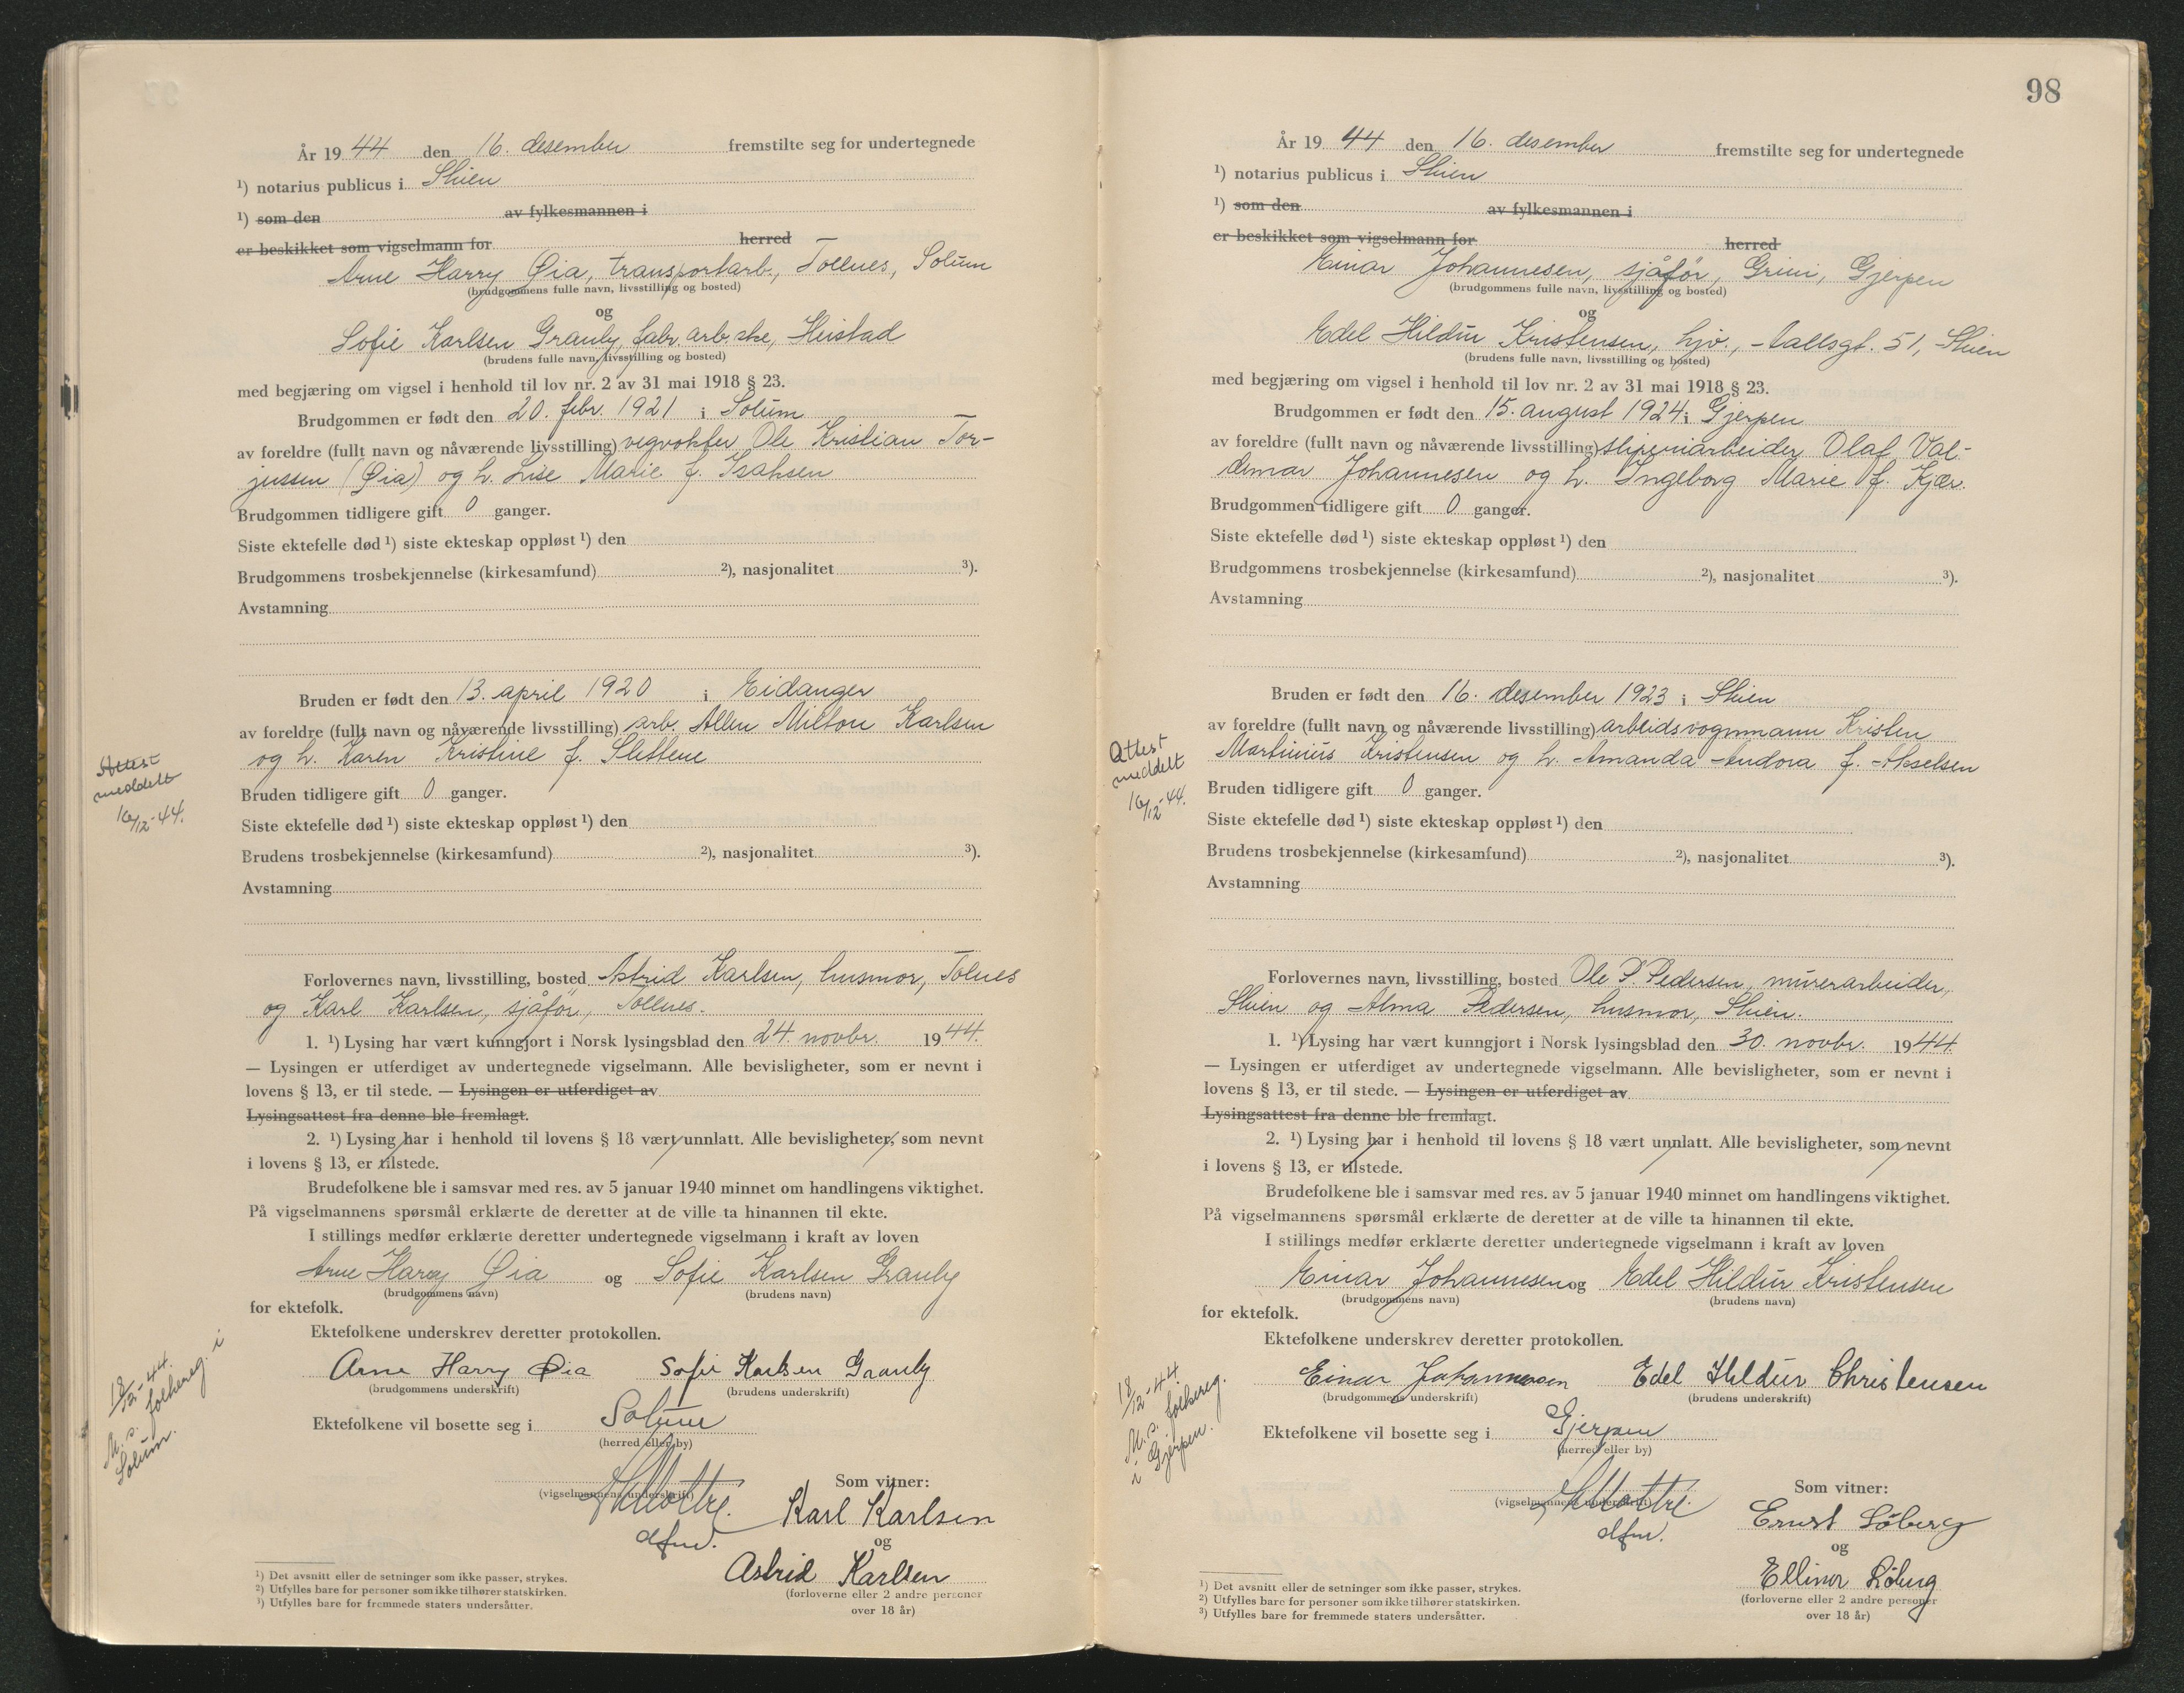 År 1944 den 16. desember fremstilte seg for undertegnede
¹) notarius publicus i Skien
¹) som den av fylkesmannen i
er beskikket som vigselmann for herred
Arne Harry Øia, transportarb., Tollnes, Solum
(brudgommens fulle navn, livsstilling og bosted)
og
Sofie Karlsen Grauly, fabr.arb.ske, Heistad
(brudens fulle navn, livsstilling og bosted)
med begjæring om vigsel i henhold til lov nr. 2 av 31 mai 1918 § 23.
Brudgommen er født den 20. febr. 1921 i Solum
av foreldre (fullt navn og nåværende livsstilling) vegvokter Ole Kristian Tor-
jussen (Øia) og h. Lise Marie f. Isaksen
Brudgommen tidligere gift 0 ganger.
Siste ektefelle død ¹) siste ekteskap oppløst ¹) den
Brudgommens trosbekjennelse (kirkesamfund) ²), nasjonalitet ³).
Avstamning
Bruden er født den 13. april 1920 i Eidanger
av foreldre (fullt navn og nåværende livsstilling) arb. Allen Milton Karlsen
og h. Karen Kristine f. Slettene
Attest
meddelt
16/12-44.
Bruden tidligere gift 0 ganger.
Siste ektefelle død ¹) siste ekteskap oppløst ¹) den
Brudens trosbekjennelse (kirkesamfund) ²), nasjonalitet ³).
Avstamning
Forlovernes navn, livsstilling, bosted Astrid Karlsen, husmor, Tolnes
og Karl Karlsen, sjåfør, Tollnes.
1. ¹) Lysing har vært kunngjort i Norsk lysingsblad den 24. novbr. 1944.
— Lysingen er utferdiget av undertegnede vigselmann. Alle bevisligheter, som er nevnt i
lovens § 13, er til stede. — Lysingen er utferdiget av
Lysingsattest fra denne ble fremlagt.
2. ¹) Lysing har i henhold til lovens § 18 vært unnlatt. Alle bevisligheter, som nevnt
i lovens § 13, er tilstede.
Brudefolkene ble i samsvar med res. av 5 januar 1940 minnet om handlingens viktighet.
På vigselmannens spørsmål erklærte de deretter at de ville ta hinannen til ekte.
I stillings medfør erklærte deretter undertegnede vigselmann i kraft av loven
Arne Harry Øia og Sofie Karlsen Grauly
(brudgommens navn) (brudens navn)
for ektefolk.
Ektefolkene underskrev deretter protokollen.
Arne Harry Øia Sofie Karlsen Grauly
(brudgommens underskrift) (brudens underskrift)
18/12-44.
M. s. folkereg. i
Solum.
Ektefolkene vil bosette seg i Solum
(herred eller by)
Som vitner:
(vigselmannens underskrift)
Karl Karlsen
dfm.
og
Astrid Karlsen
(forloverne eller 2 andre personer
over 18 år)
¹) Det avsnitt eller de setninger som ikke passer, strykes.
²) Utfylles bare for personer som ikke tilhører statskirken.
³) Utfylles bare for fremmede staters undersåtter.
98
År 1944 den 16. desember fremstilte seg for undertegnede
¹) notarius publicus i Skien
¹) som den av fylkesmannen i
er beskikket som vigselmann for herred
Einar Johannesen, sjåfør, Grini, Gjerpen
(brudgommens fulle navn, livsstilling og bosted)
og
Edel Hildur Kristensen, hjv., Aallsgt. 51, Skien
(brudens fulle navn, livsstilling og bosted)
med begjæring om vigsel i henhold til lov nr. 2 av 31 mai 1918 § 23.
Brudgommen er født den 15. august 1924 i Gjerpen
av foreldre (fullt navn og nåværende livsstilling) sliperiarbeider Olaf Val-
demar Johannesen og h. Ingeborg Marie f. Kjær.
Brudgommen tidligere gift 0 ganger.
Siste ektefelle død ¹) siste ekteskap oppløst ¹) den
Brudgommens trosbekjennelse (kirkesamfund) ²), nasjonalitet ³).
Avstamning
Bruden er født den 16. desember 1923 i Skien
av foreldre (fullt navn og nåværende livsstilling) arbeidsvognmann Kristen
Martinius Kristensen og h. Amanda Andora f. Akselsen
Attest
meddelt
16/12-44.
Bruden tidligere gift 0 ganger.
Siste ektefelle død ¹) siste ekteskap oppløst ¹) den
Brudens trosbekjennelse (kirkesamfund) ²), nasjonalitet ³).
Avstamning
Forlovernes navn, livsstilling, bosted Ole P. Pedersen, murerarbeider,
Skien og Alma Pedersen, husmor, Skien.
1. ¹) Lysing har vært kunngjort i Norsk lysingsblad den 30. novbr. 1944.
— Lysingen er utferdiget av undertegnede vigselmann. Alle bevisligheter, som er nevnt i
lovens § 13, er til stede. — Lysingen er utferdiget av
Lysingsattest fra denne ble fremlagt.
2. ¹) Lysing har i henhold til lovens § 18 vært unnlatt. Alle bevisligheter, som nevnt
i lovens § 13, er tilstede.
Brudefolkene ble i samsvar med res. av 5 januar 1940 minnet om handlingens viktighet.
På vigselmannens spørsmål erklærte de deretter at de ville ta hinannen til ekte.
I stillings medfør erklærte deretter undertegnede vigselmann i kraft av loven
Einar Johannesen og Edel Hildur Kristensen
(brudgommens navn) (brudens navn)
for ektefolk.
Ektefolkene underskrev deretter protokollen.
Einar Johannesen Edel Hildur Christensen
(brudgommens underskrift) (brudens underskrift)
18/12-44.
M. s. folkereg.
i Gjerpen.
Ektefolkene vil bosette seg i Gjerpen
(herred eller by)
Som vitner:
(vigselmannens underskrift)
Ernst Löberg
dfm.
og
Ellinor Löberg
(forloverne eller 2 andre personer
over 18 år)
¹) Det avsnitt eller de setninger som ikke passer, strykes.
²) Utfylles bare for personer som ikke tilhører statskirken.
³) Utfylles bare for fremmede staters undersåtter.